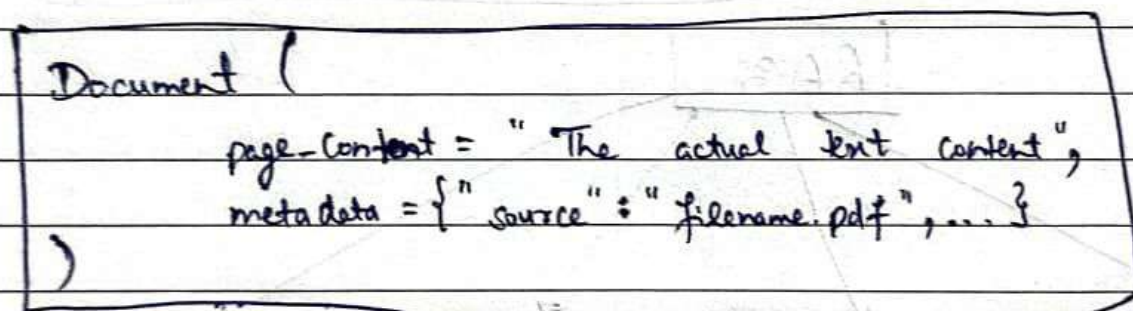 Document (
page_content = "The actual text content",
metadata = {"source" : "filename.pdf", ... }
)